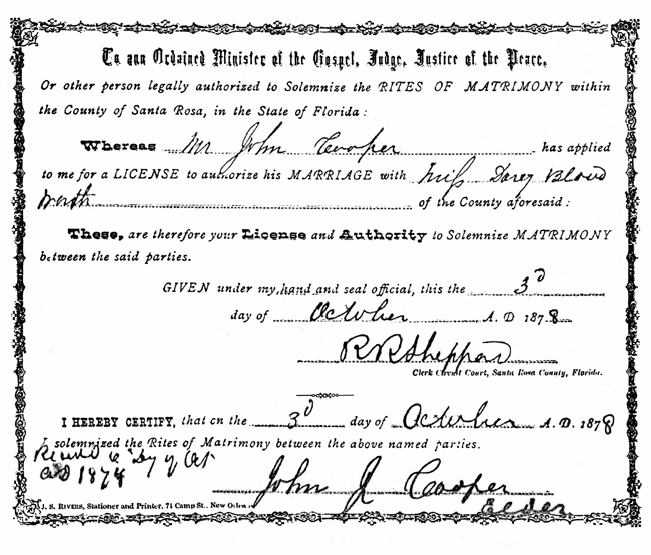 To any Ordained Minister of the Gospel, Judge, Justice of the Peace,
Or other person legally authorized to Solemnize the RITES OF MATRIMONY within
the County of Santa Rosa, in the State of Florida:
Whereas Mr John Cooper has applied
to me for a LICENSE to authorize his MARRIAGE with Miss Darcy Blood
worth of the County aforesaid:
These, are therefore your License and Authority to Solemnize MATRIMONY
between the said parties.
GIVEN under my hand and seal official, this the 3d
day of October A. D 1878
R R Sheppard
Clerk Circuit Court, Santa Rosa County, Florida.
I HEREBY CERTIFY, that on the 3d day of October A. D. 1878
I solemnized the Rites of Matrimony between the above named parties.
day of Oct
AD 1878
John J Cooper
Elder
J. S. RIVERS, Stationer and Printer, 71 Camp St., New Orleans